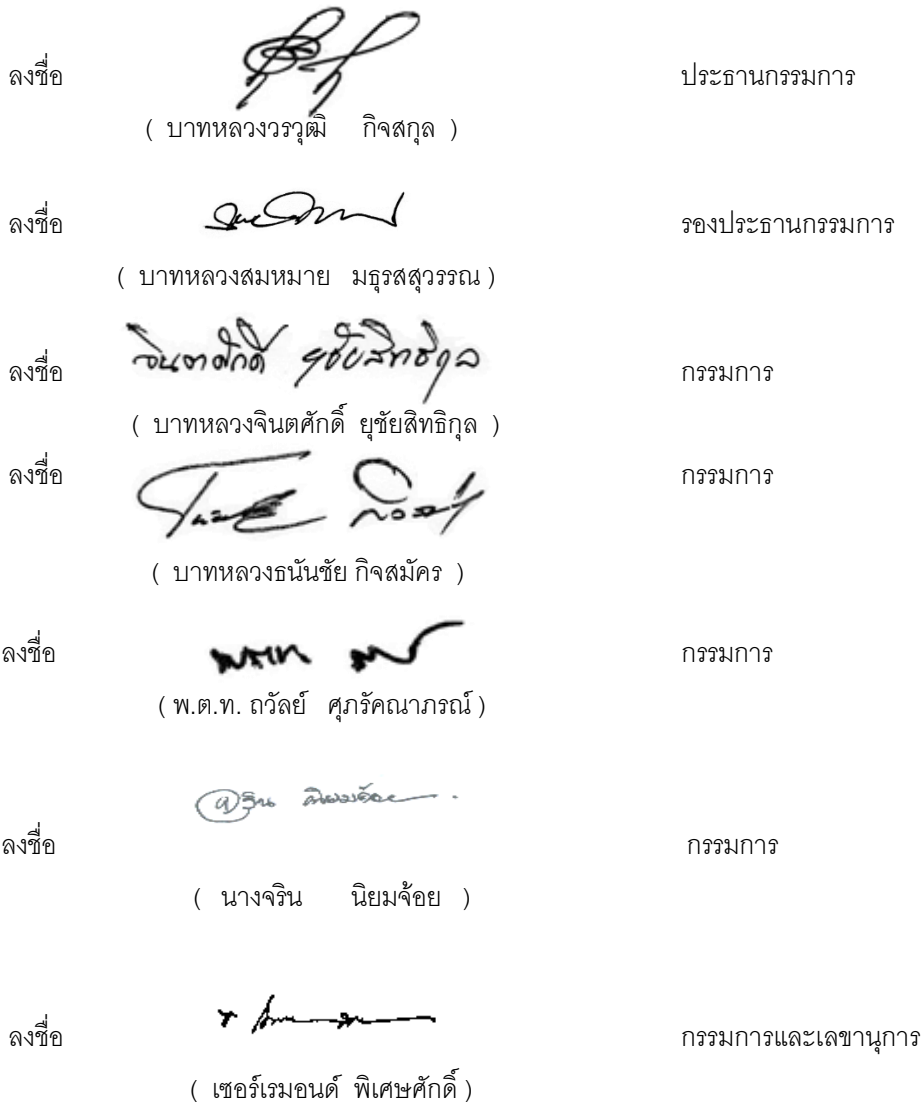 ลงชื่อ ประธานกรรมการ
( บาทหลวงวรวุฒิ กิจสกุล )
ลงชื่อ รองประธานกรรมการ
( บาทหลวงสมหมาย มธุรสสุวรรณ )
ลงชื่อ จินตศักดิ์ ยุชัยสิทธิกุล กรรมการ
( บาทหลวงจินตศักดิ์ ยุชัยสิทธิกุล )
ลงชื่อ กรรมการ
( บาทหลวงธนันชัย กิจสมัคร )
ลงชื่อ กรรมการ
( พ.ต.ท. ถวัลย์ ศุภรัคณาภรณ์ )
ลงชื่อ กรรมการ
( นางจริน นิยมจ้อย )
ลงชื่อ กรรมการและเลขานุการ
( เซอร์เรมอนด์ พิเศษศักดิ์ )